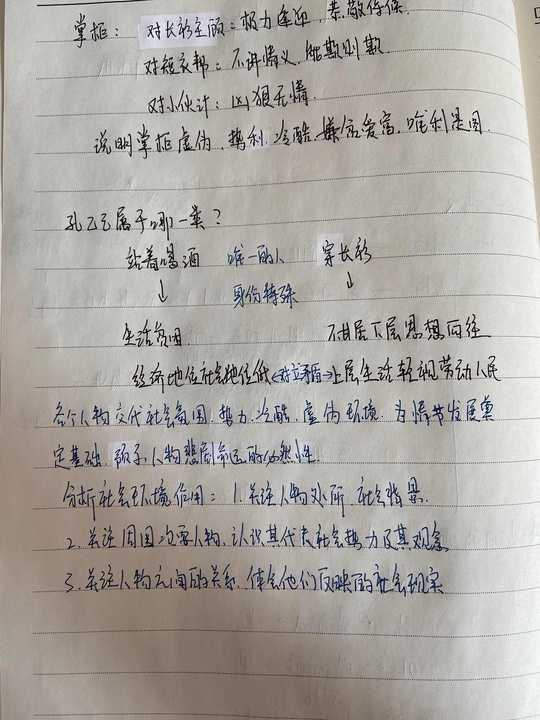 掌柜：对长衫主顾：极力逢迎，恭敬侍候
对短衣帮：不讲情义，能欺则欺
对小伙计：凶狠无情
说明掌柜虚伪，势利，冷酷，嫌贫爱富，唯利是图.
孔乙己属于哪一类？
站着喝酒 唯一的人 穿长衫
↓ 身份特殊 ↓
生活贫困 不甘居下层思想向往
经济地位社会地位低←对立矛盾→上层生活轻视劳动人民
各个人物交代社会氛围，势力，冷酷，虚伪环境，为情节发展奠
定基础，预示人物悲剧命运的必然性.
分析社会环境作用：1.关注人物处所，社会背景.
2.关注周围次要人物，认识其代表社会势力及其观念
3.关注人物之间的关系，体会他们反映的社会现实